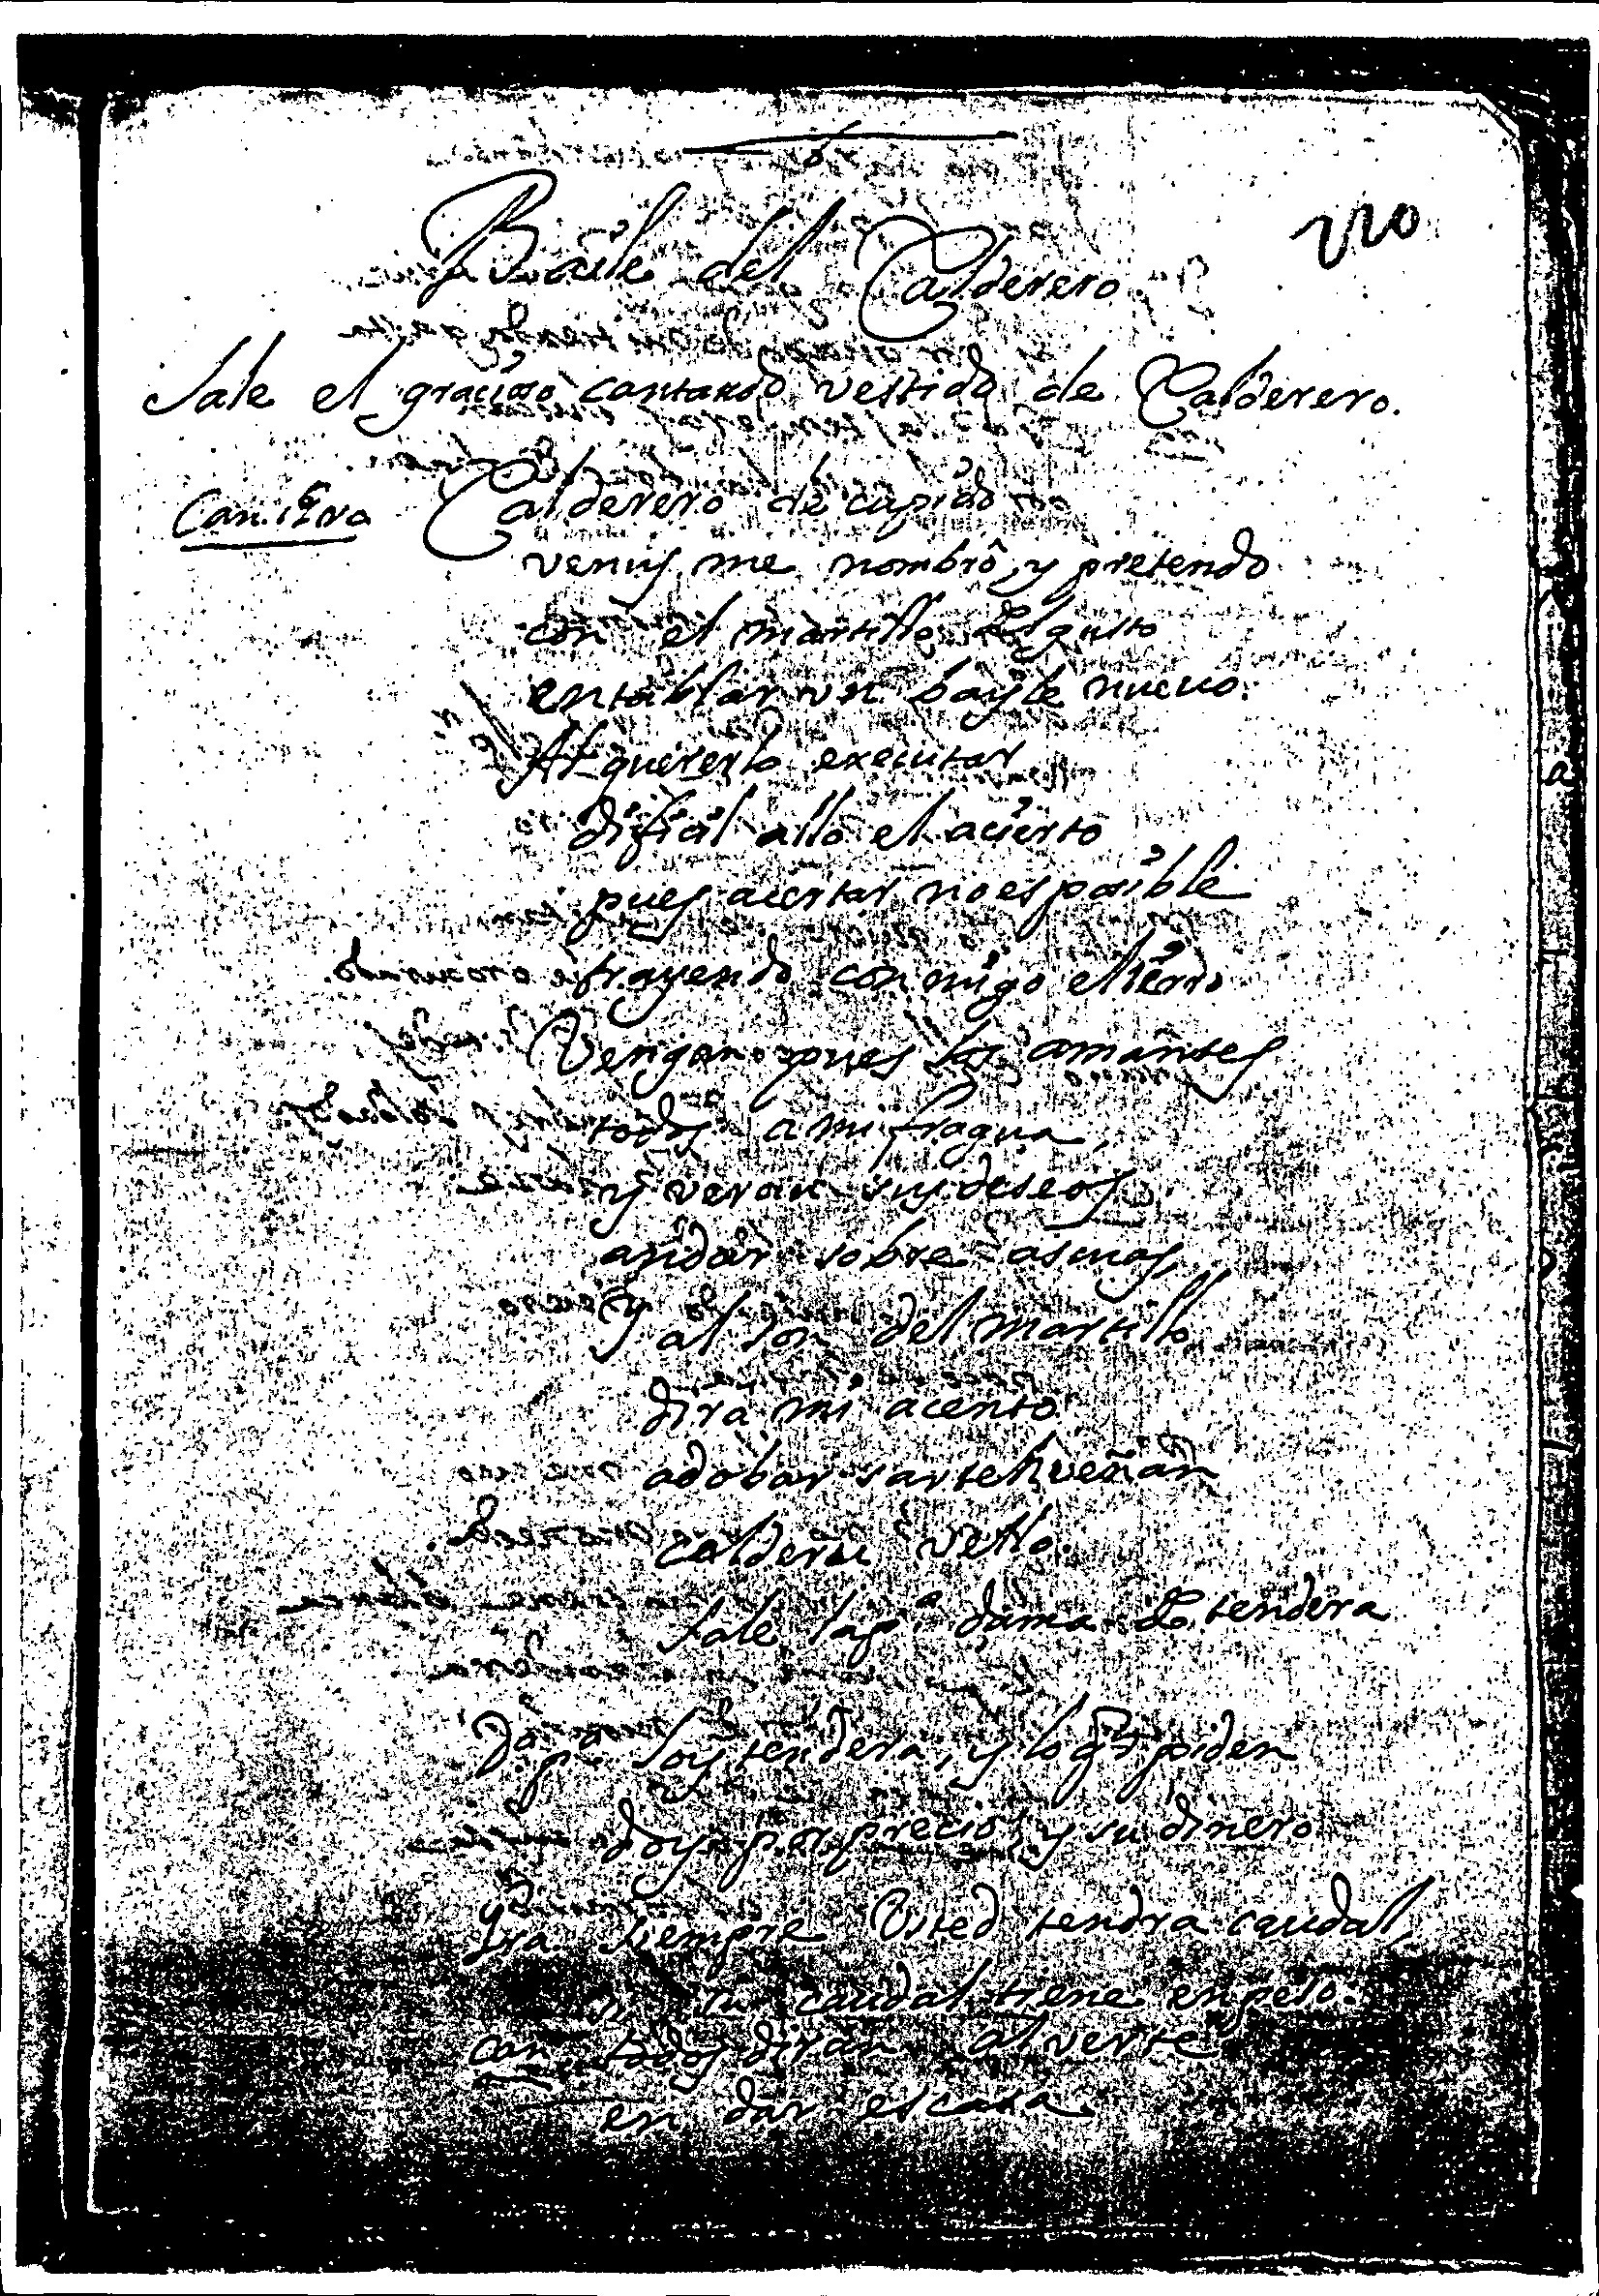 220
Baile del Calderero.
Sale el gracioso cantando vestido de Calderero.
Can. Calderero de cupido
venus me nombrô, y pretendo
con el martillo del gusto
entablar vn bayle nueuo.
Al quererlo executar
dificil allo el acierto
pues acertar no es posible
trayendo conmigo el
Vengan pues los amantes
todos a mi fragua,
y veran sus deseos
andar sobre asquas,
y al son del martillo
dirá mi acento
adobar sarten
calderas vello.
Sale la pª dama de tendera
Dª pª Soy tendera, y lo q piden
doy por precio, y su dinero
Gra. Siempre Vsted tendra caudal,
su caudal tiene en peso.
can. todos diran al verte
en dar escasa